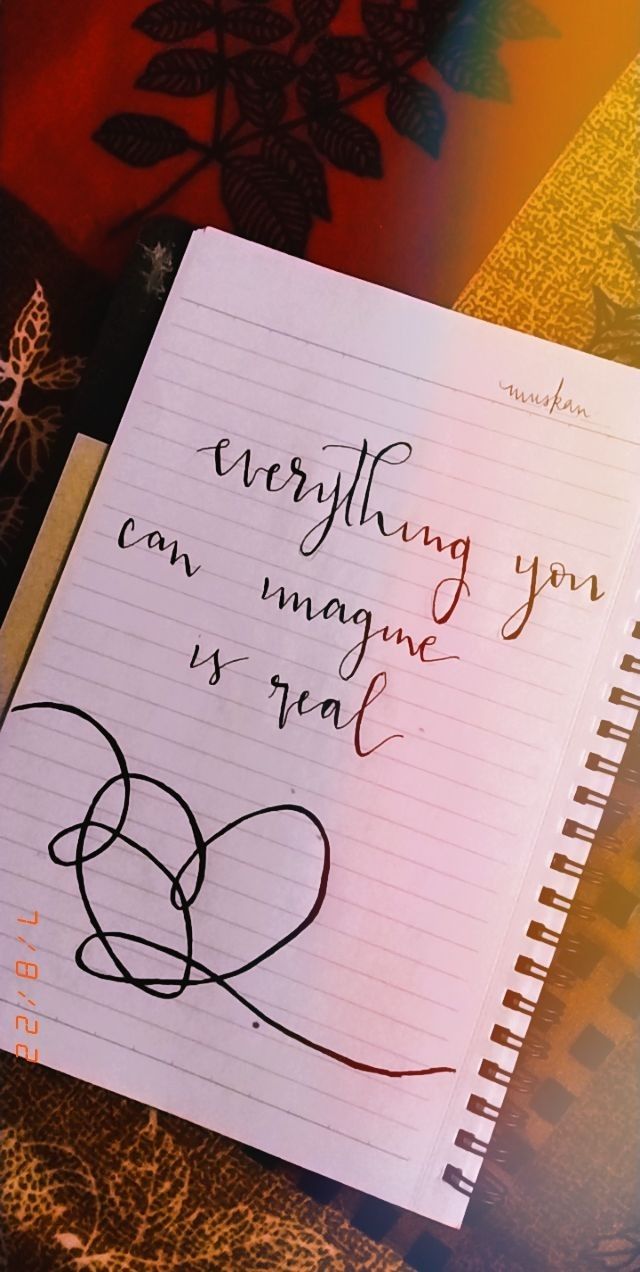 muskan
everything you
can imagine
is real
7/8/22